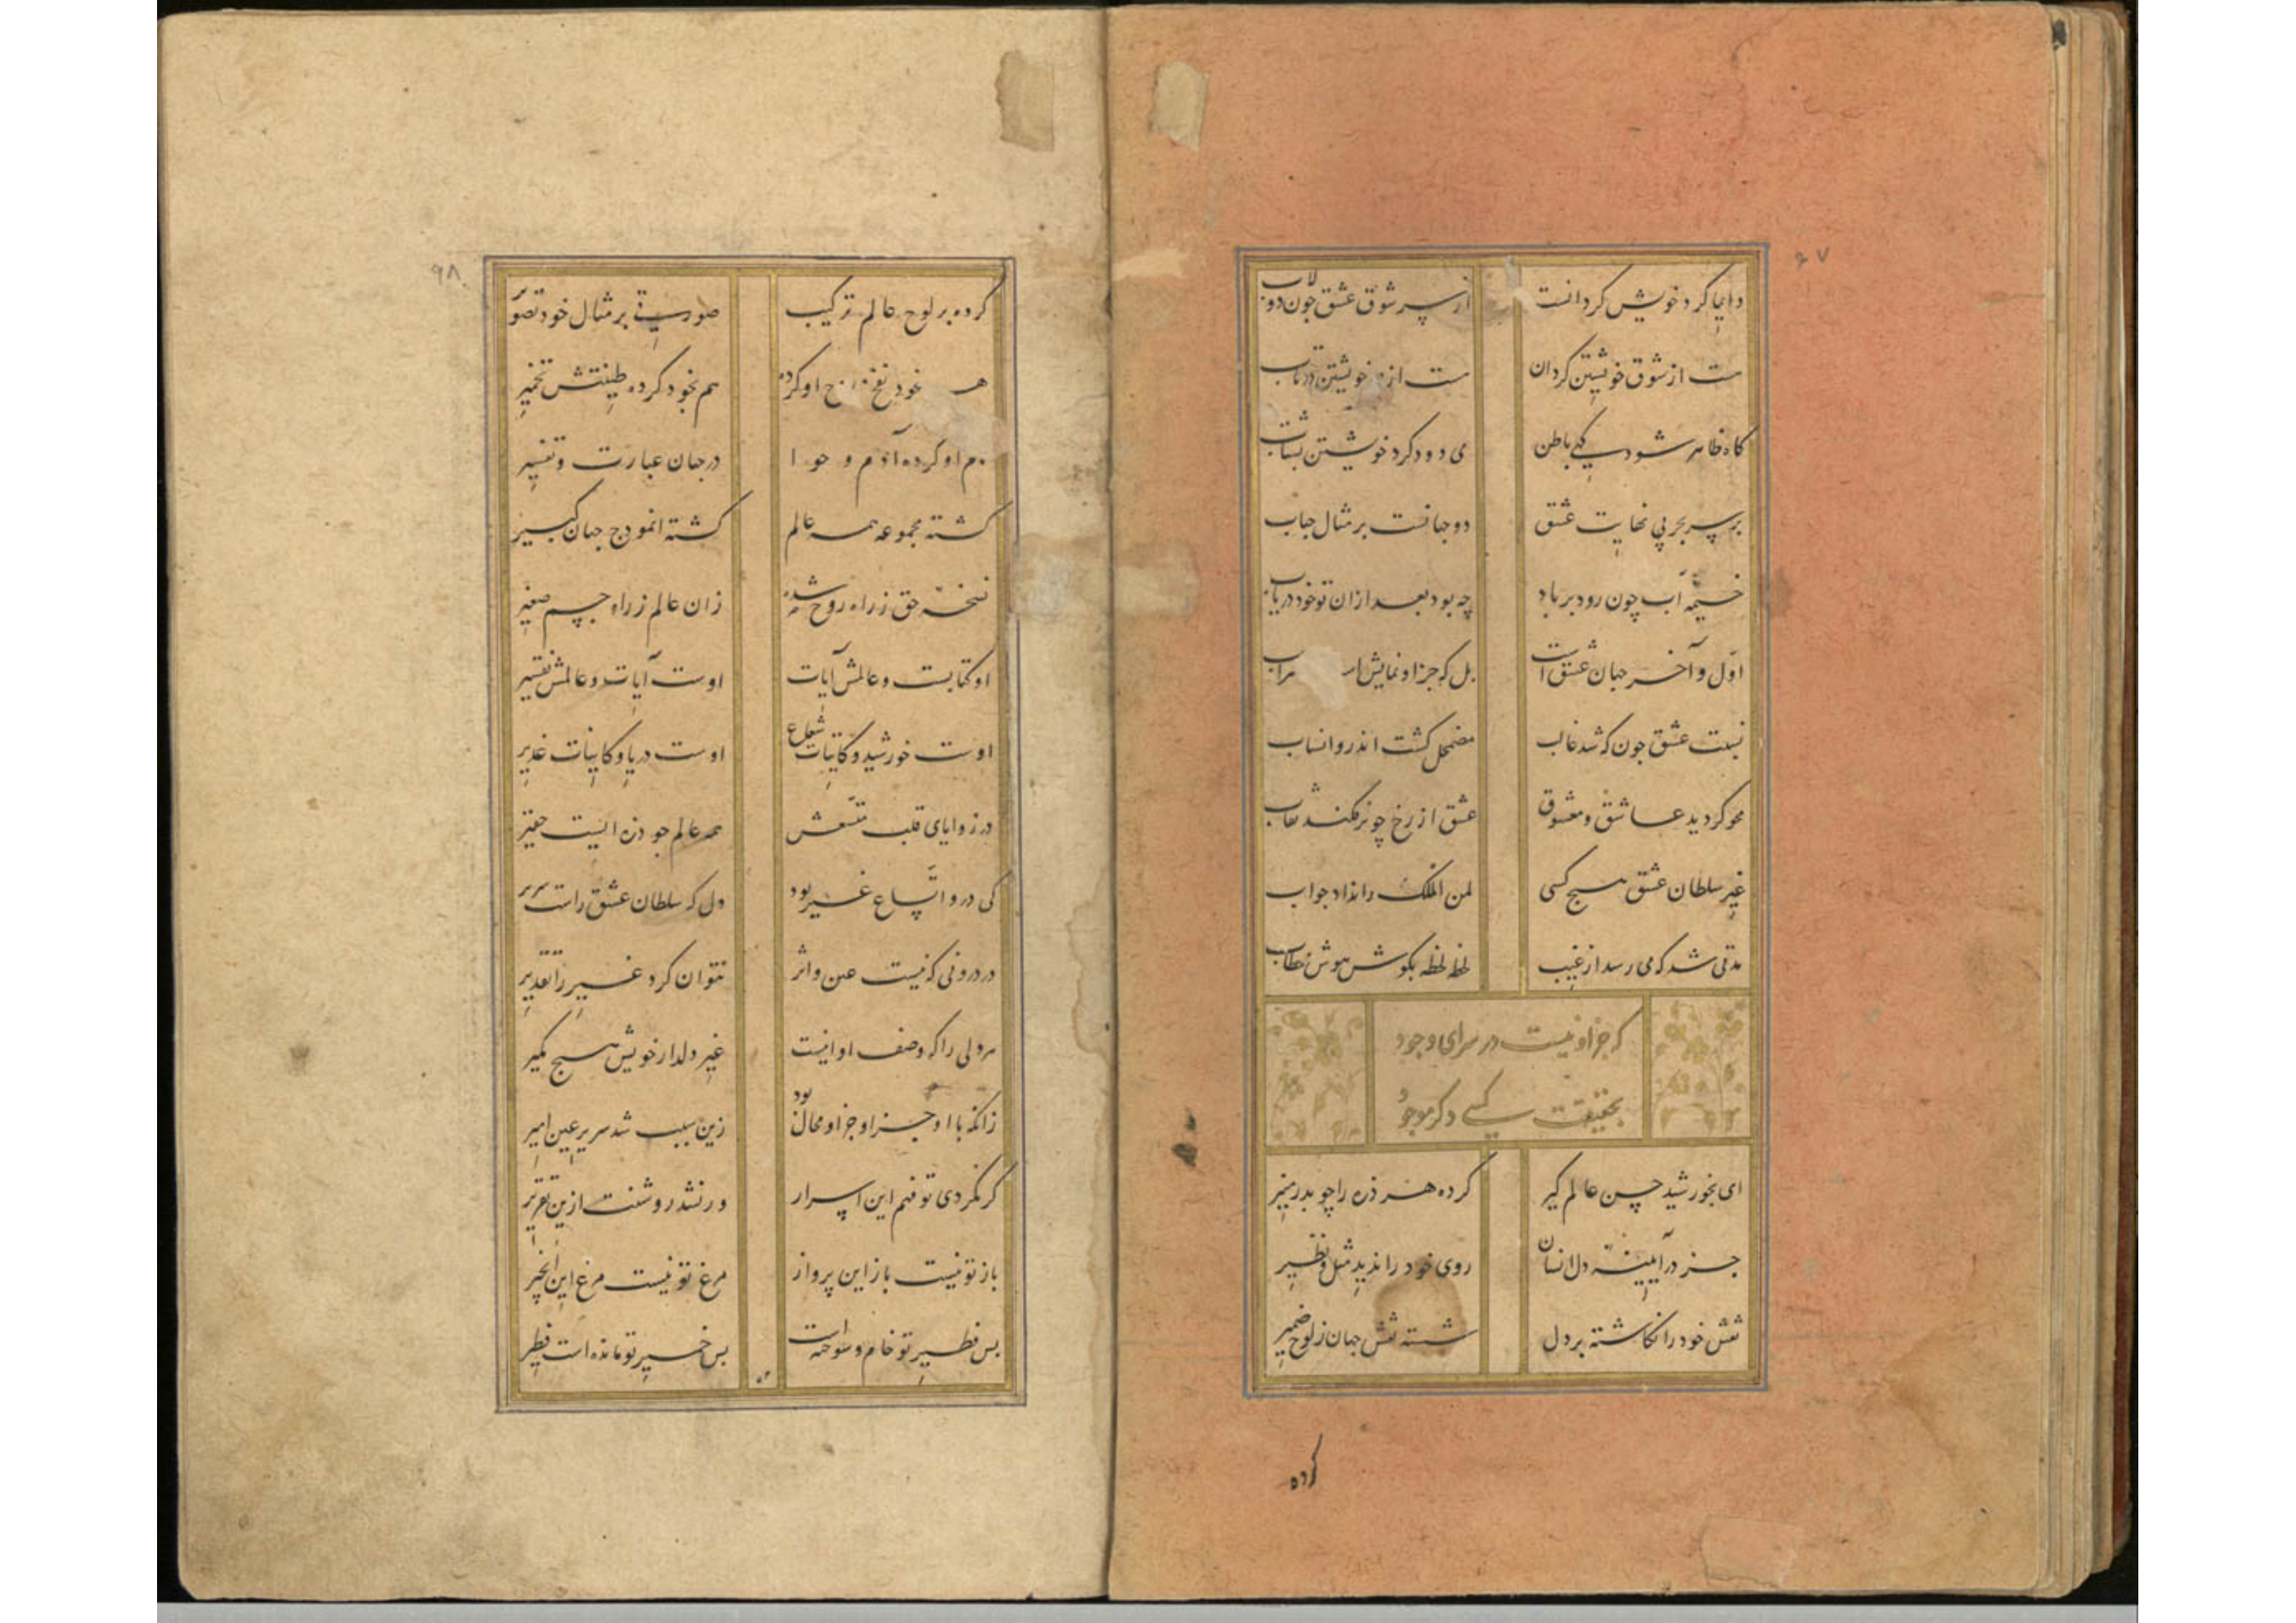 ۹۷
دایما کرد خویش کردانست از سر شوق عشق چون دولاب
ست از شوق خویشتن کردان ست از خویشتن در تاب
کاه ظاهر شود کهی باطن می دود کرد خویشتن بشتاب
بر سر بحر بی نهایت عشق دو جهانست بر مثال حباب
خیمهٔ آب چون رود بر باد چه بود بعد ازان تو خود دریاب
اوّل و آخر جهان عشق است بل که جز او نمایش سراب
نسبت عشق چون که شد غالب مضمحل کشت اندرو انساب
محو کردید عاشق و معشوق عشق از رخ چو برفکند نقاب
غیر سلطان عشق هیچ کسی لمن الملک را نداد جواب
مدتی شد که می رسد از غیب لحظه لحظه بکوش هوش خطاب
که جز او نیست در سرای وجود
بحقیقت کسی دکر موجود
ای بخورشید حسن عالم کیر کرده هر ذره را چو بدر منیر
جز در آیینهٔ دل انسان روی خود را ندید مثل و نظیر
نقش خود را نکاشته بر دل شسته نقش جهان ز لوح ضمیر
کرده
۹۸
کرده بر لوح عالم ترکیب صورتی بر مثال خود تصویر
خود نفخ او کرده هم بخود کرده طینتش تخمیر
او کرده آدم و حوا در جهان عبارت و تفسیر
کشته مجموعه همه عالم کشته انموذج جهان کبیر
نسخهٔ حق ز راه روح شده زان عالم ز راه جسم صغیر
او کتابست و عالمش آیات اوست آیات و عالمش تفسیر
اوست خورشید و کاینات شعاع اوست دریا و کاینات غدیر
در زوایای قلب متسعش همه عالم چو ذره ایست حقیر
کی درو اتساع غیر بود دل که سلطان عشق راست سریر
در درونی که نیست عین و اثر نتوان کرد غیر را تقدیر
مر دلی را که وصف او اینست غیر دلدار خویش هیچ مکیر
زانکه با او جز او جز او محال بود زین سبب شد سریر عین امیر
کر نکردی تو فهم این اسرار ور نشد روشنت ازین تقریر
باز تو نیست باز این پرواز مرغ تو نیست مرغ این انجیر
بس فطیر تو خام و سوخته است بس خمیر تو مانده است فطیر